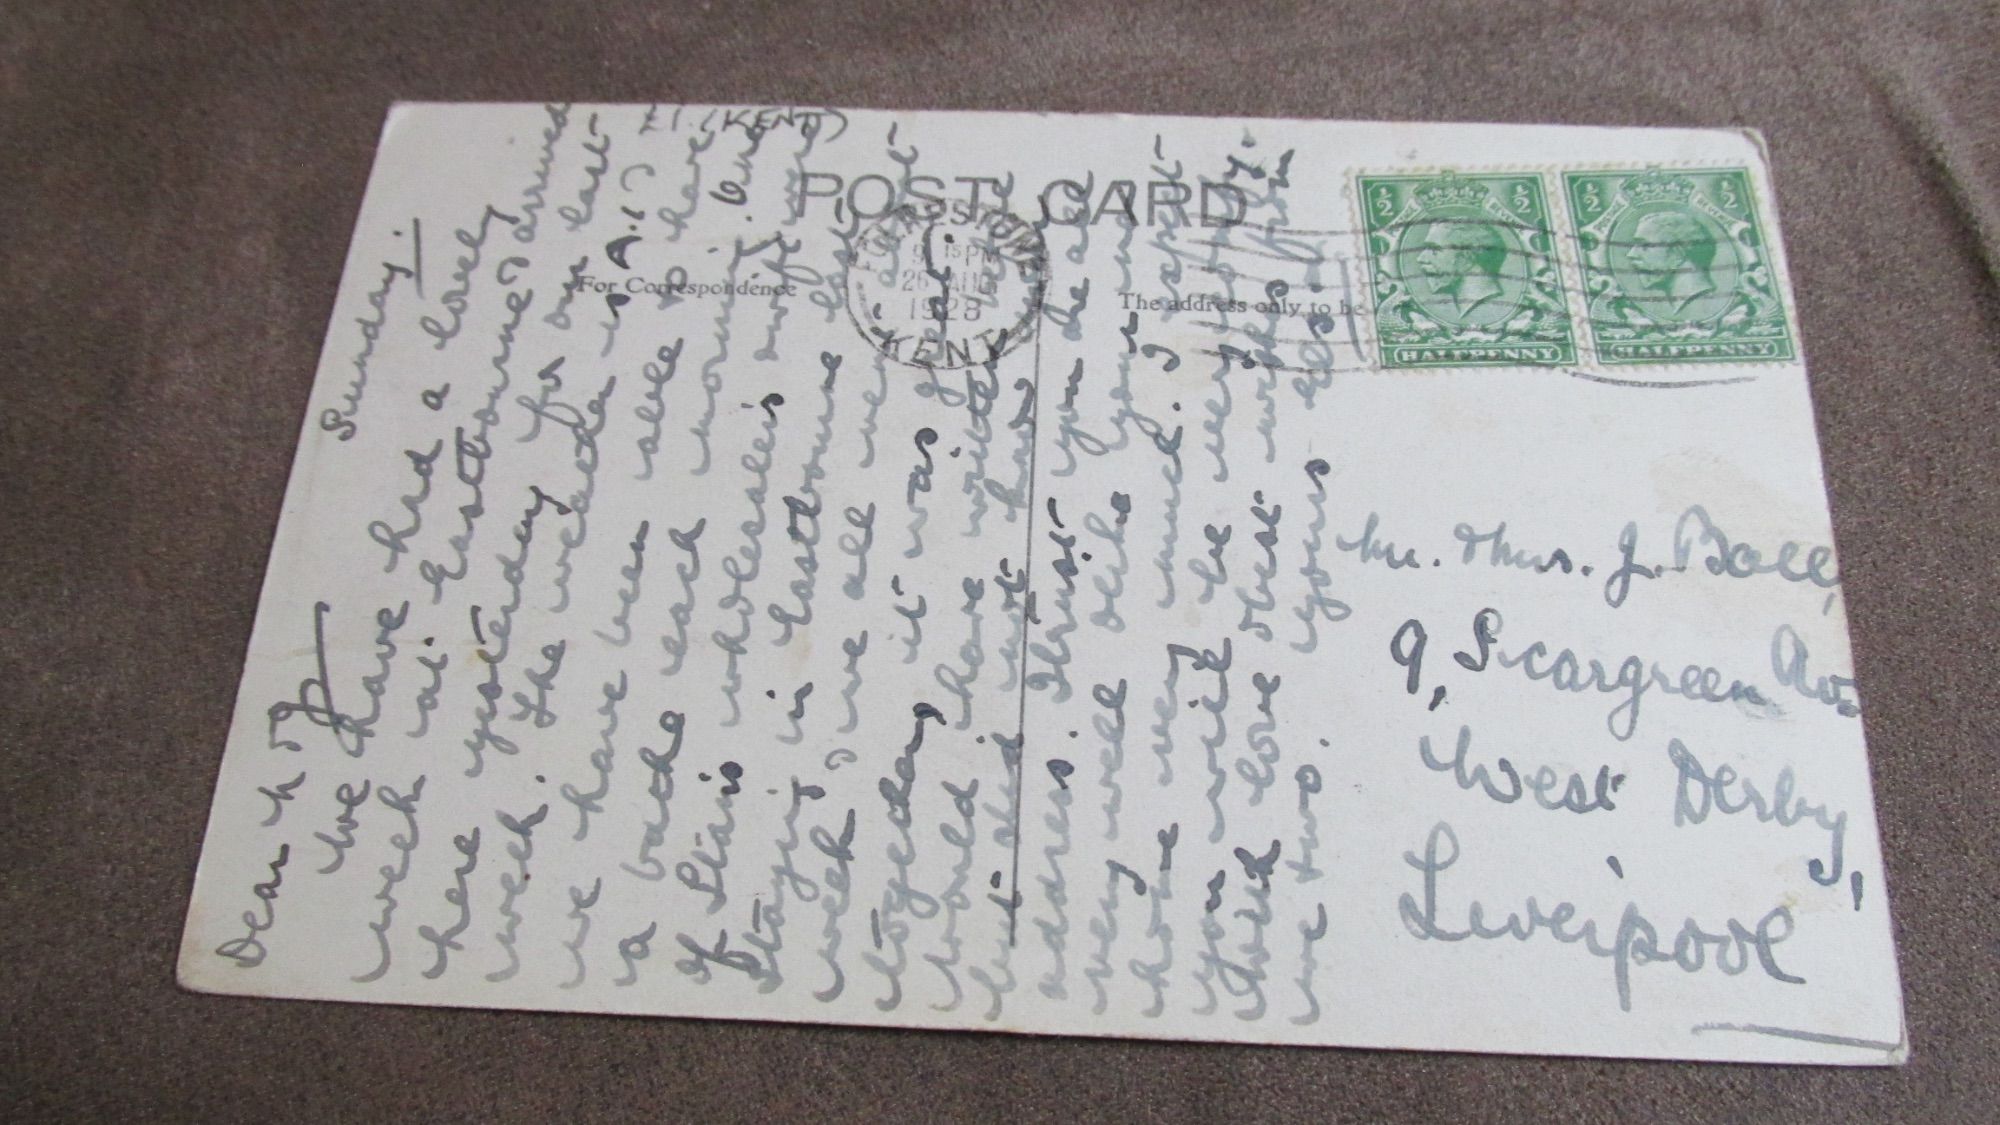 POST CARD
For Correspondence
The address only to be
FOLKESTONE
9 15 PM
26 AUG
1928
KENT
½ ½
HALFPENNY
½ ½
HALFPENNY
(KENT)
Sunday.
Dear
We have had a lovely
week at Eastbourne & arrived
here yesterday for our last
week. The weather is A.1. &
we have been able to have
a bathe each morning. One
of Stan's wholesalers & wife were
staying in Eastbourne last
week, & we all went about
together, it was
would have written
but did not have your
address. I trust you are all
very well & like your new
home very much. I expect
you will be very
With love & best wishes from
we two. Yours
Mr. & Mrs. J. Ball,
9, Scargreen Av.
West Derby,
Liverpool